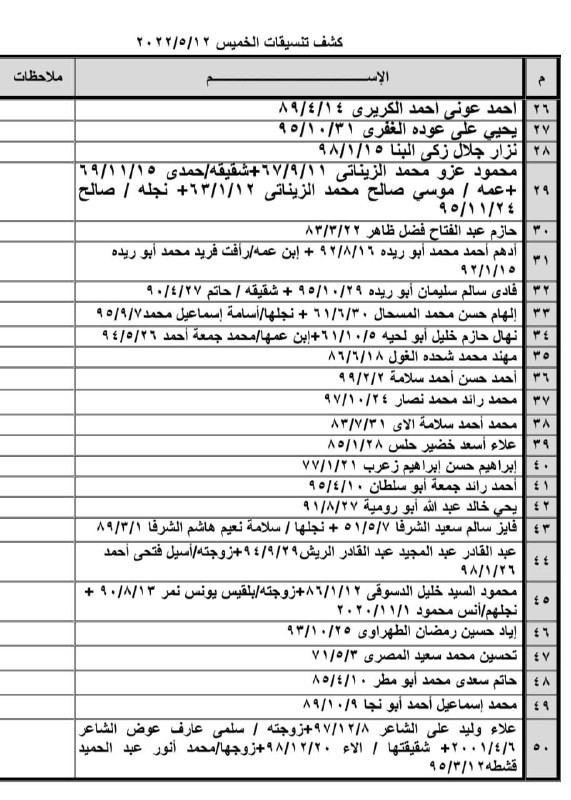 كشف تنسيقات الخميس ٢٠٢٢/٥/١٢
م الإســـــــــــم ملاحظات
٢٦ احمد عونى احمد الكريرى ٨٩/٤/١٤
٢٧ يحيي علي عوده الغفرى ٩٥/١٠/٣١
٢٨ نزار جلال زكى البنا ٩٨/١/١٥
٢٩ محمود عزو محمد الزيناتى ٦٧/٩/١١+شقيقه/حمدى ٦٩/١١/١٥
+عمه / موسي صالح محمد الزيناتى ٦٣/١/١٢+ نجله / صالح
٩٥/١١/٢٤
٣٠ حازم عبد الفتاح فضل ظاهر ٨٣/٣/٢٢
٣١ أدهم أحمد محمد أبو ريده ٩٢/٨/١٦ + إبن عمه/رأفت فريد محمد أبو ريده
٩٢/١/١٥
٣٢ فادى سالم سليمان أبو ريده ٩٥/١٠/٢٩ + شقيقه / حاتم ٩٠/٤/٢٧
٣٣ إلهام حسن محمد المسحال ٦١/٦/٣٠ + نجلها/أسامة إسماعيل محمد٩٥/٩/٧
٣٤ نهال حازم خليل أبو لحيه ٦١/١٠/٥+إبن عمها/محمد جمعة أحمد ٩٤/٥/٢٦
٣٥ مهند محمد شحده الغول ٨٦/٦/١٨
٣٦ أحمد حسن أحمد سلامة ٩٩/٢/٢
٣٧ محمد رائد محمد نصار ٩٧/١٠/٢٤
٣٨ محمد أحمد سلامة الاى ٨٣/٧/٣١
٣٩ علاء أسعد خضير حلس ٨٥/١/٢٨
٤٠ إبراهيم حسن إبراهيم زعرب ٧٧/١/٢١
٤١ أحمد رائد جمعة أبو سلطان ٩٥/٤/١٠
٤٢ يحي خالد عبد الله أبو رومية ٩١/٨/٢٧
٤٣ فايز سالم سعيد الشرفا ٥١/٥/٧ + نجلها / سلامة نعيم هاشم الشرفا ٨٩/٣/١
٤٤ عبد القادر عبد المجيد عبد القادر الريش٩٤/٩/٢٩+زوجته/أسيل فتحى أحمد
٩٨/١/٢٦
٤٥ محمود السيد خليل الدسوقى ٨٦/١/١٢+زوجته/بلقيس يونس نمر ٩٠/٨/١٣ +
نجلهم/أنس محمود ٢٠٢٠/١١/١
٤٦ إياد حسين رمضان الطهراوى ٩٣/١٠/٢٥
٤٧ تحسين محمد سعيد المصرى ٧١/٥/٣
٤٨ حاتم سعدى محمد أبو مطر ٨٥/٤/١٠
٤٩ محمد إسماعيل أحمد أبو نجا ٨٩/١٠/٩
٥٠ علاء وليد على الشاعر ٩٧/١٢/٨+زوجته / سلمى عارف عوض الشاعر
٢٠٠١/٤/٦+ شقيقتها / الاء ٩٨/١٢/٢٠+زوجها/محمد أنور عبد الحميد
قشطه٩٥/٣/١٢